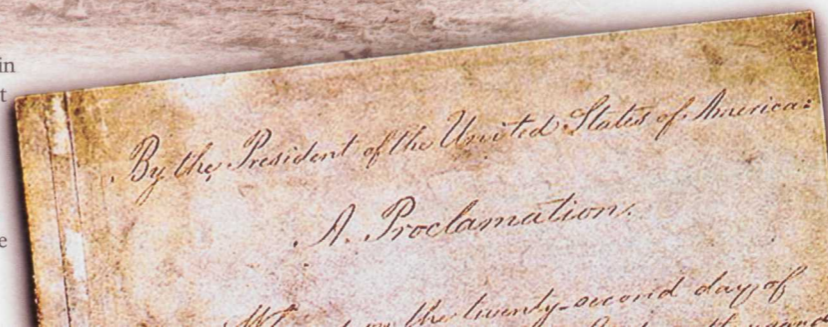 in
t
e
By the President of the United States of America:
A. Proclamation.
on the twenty-second day of